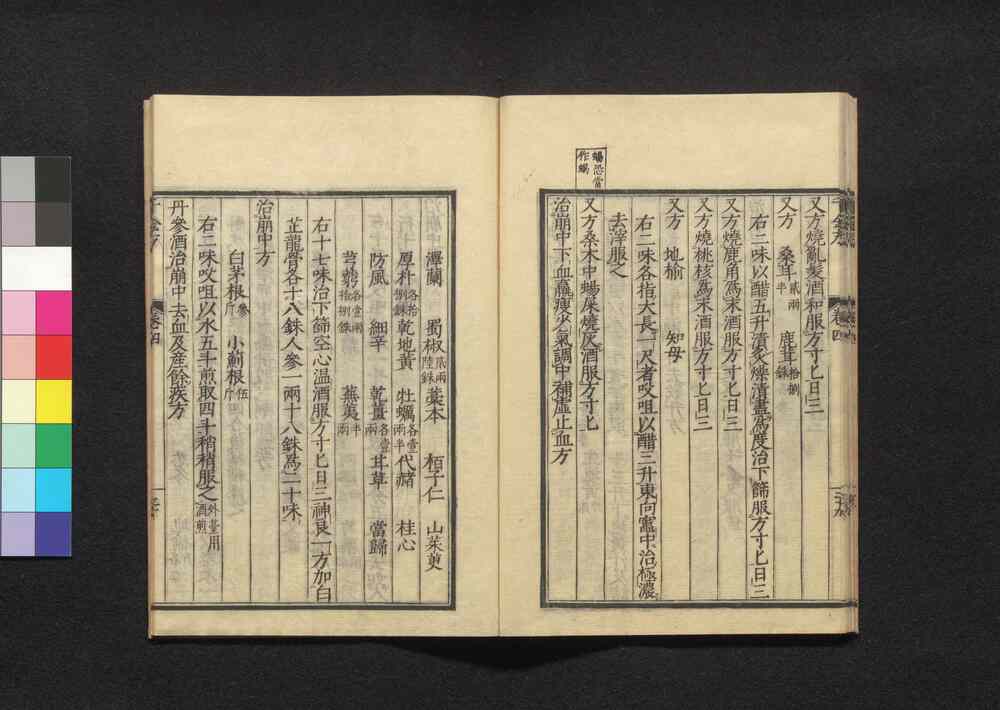 蝪恐當
作蝎
又方燒亂髮酒和服方寸匕日三
又方 桑耳貳兩半 鹿茸拾捌銖
右二味以醋五升漬炙燥漬盡爲度治下篩服方寸匕日三
又方燒鹿角爲末酒服方寸匕日三
又方燒桃核爲末酒服方寸匕日三
又方 地榆 知母
右二味各指大長一尺者㕮咀以醋三升東向竈中治極濃
去滓服之
又方桑木中蝪屎燒灰酒服方寸匕
治崩中下血羸瘦少氣調中補虛止血方
千金方 卷四
澤蘭 蜀椒貳兩陸銖 藁本 栢子仁 山茱萸
厚朴各拾捌銖 乾地黃 牡蠣各壹兩半 代赭 桂心
防風 細辛 乾薑各壹兩 甘草 當歸
芎藭各壹兩拾捌銖 蕪荑半兩
右十七味治下篩空心溫酒服方寸匕日三神良一方加白
芷龍骨各十八銖人參一兩十八銖爲二十味
治崩中方
白茅根參斤 小薊根伍斤
右二味㕮咀以水五斗煎取四斗稍稍服之外臺用酒煎
丹參酒治崩中去血及產餘疾方
千金方 卷四